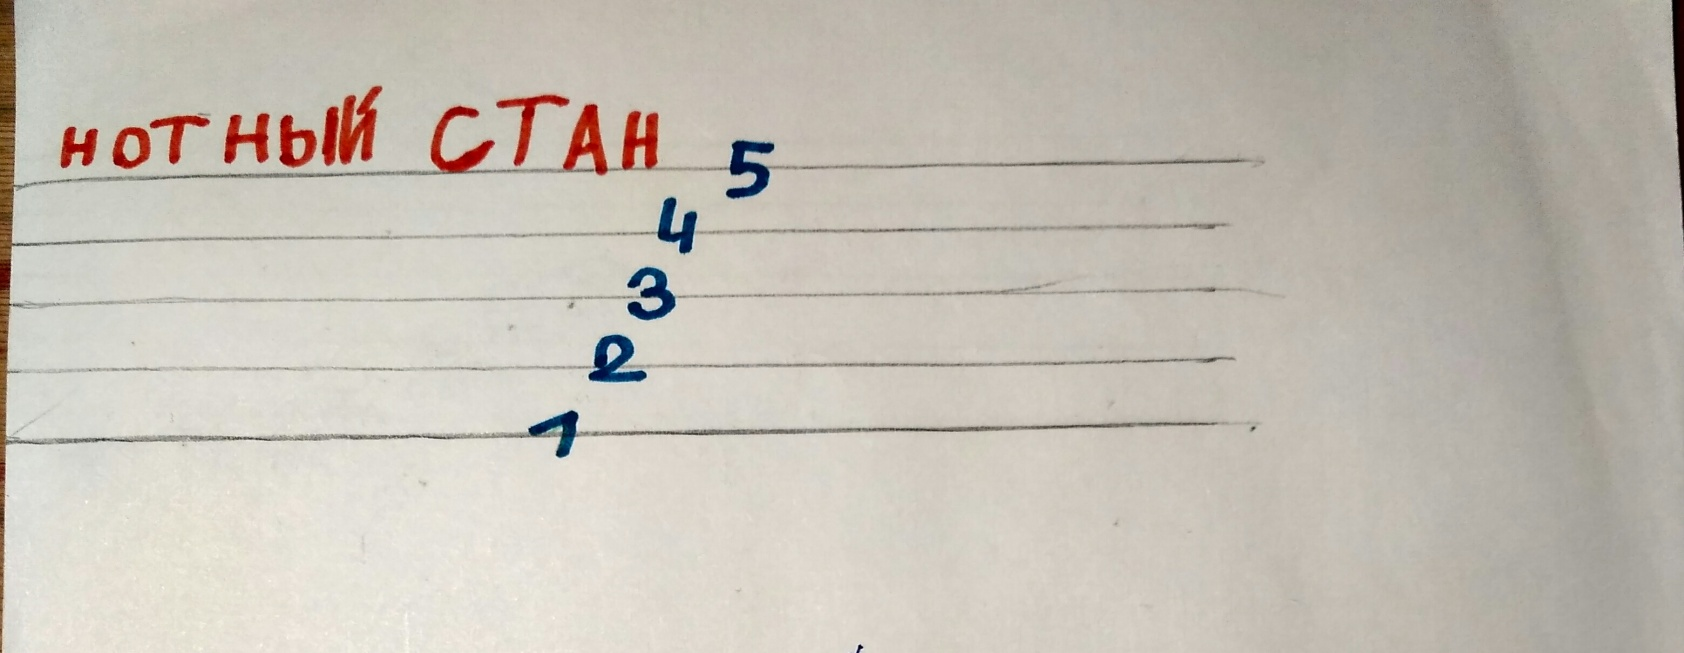 НОТНЫЙ СТАН
5
4
3
2
1